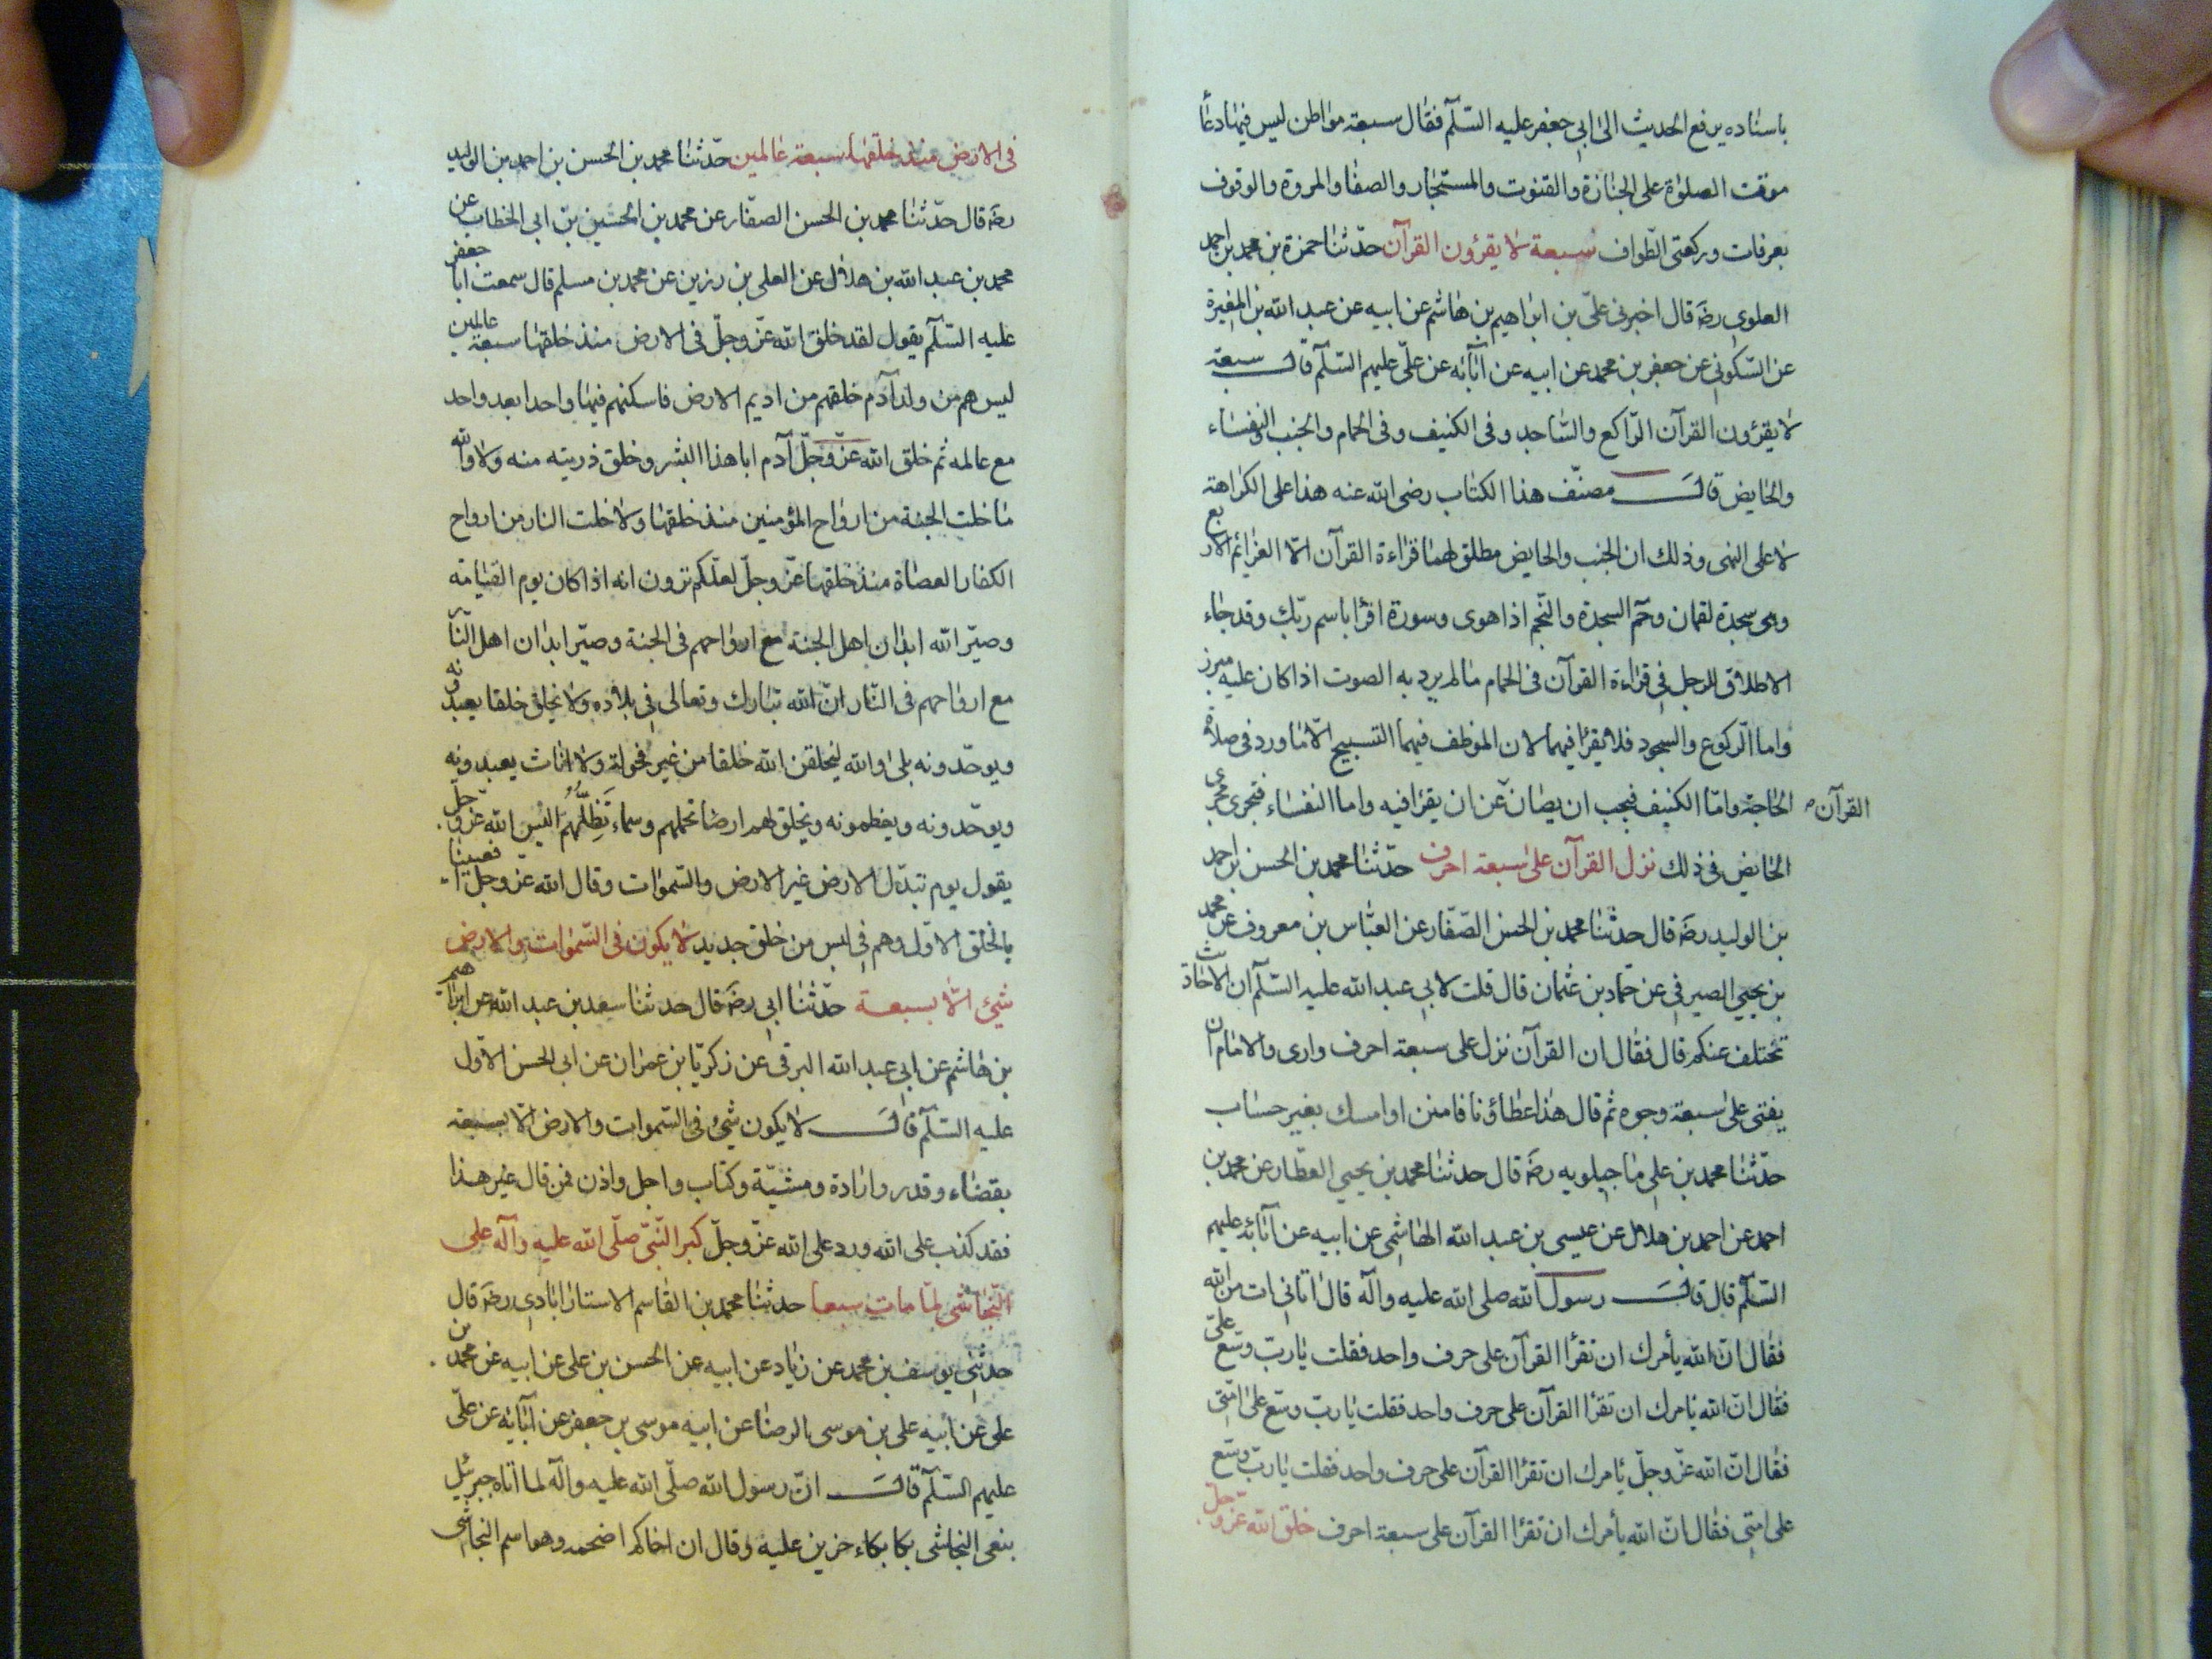 باسناده يرفع الحديث الى ابي جعفر عليه السّلم فقال سبعة مواطن ليس فيها دعاء
موقت الصلوة على الجنازة والقنوت والمستجار والصفا والمروة والوقوف
بعرفات وركعتى الطّواف سبعة لا يقرؤن القرآن حدّثنا حمزة بن محمد بن احمد
العلوى رضه قال اخبرنى علىّ بن ابراهيم بن هاشم عن ابيه عن عبد الله بن المغيرة
عن السّكونى عن جعفر بن محمد عن ابيه عن آبائه عن علىّ عليهم السّلم قال سبعة
لا يقرؤن القرآن الرّاكع والسّاجد وفى الكنيف وفى الحمام والجنب والنفساء
والحايض قال مصنّف هذا الكتاب رضى الله عنه هذا على الكراهة
لا على النهى وذلك ان الجنب والحايض مطلق لهما قراءة القرآن الا العزائم الاربع
وهى سجدة لقمان وحم السجدة والنّجم اذا هوى وسورة اقرا باسم ربّك وقد جاء
الاطلاق للرجل فى قراءة القرآن فى الحمام ما لم يرد به الصوت اذا كان عليه ميزر
واما الرّكوع والسجود فلا يقرا فيهما لان الموظف فيهما التسبيح الّا ما ورد فى صلاة
الحاجة وامّا الكنيف فيجب ان يصان عن ان يقرا فيه واما النفساء فتجرى مجرى
القرآن
الحايض فى ذلك نزل القرآن على سبعة احرف حدّثنا محمد بن الحسن بن احمد
بن الوليد رضه قال حدّثنا محمد بن الحسن الصّفار عن العبّاس بن معروف عن محمد
بن يحيى الصيرفى عن حمّاد بن عثمان قال قلت لابى عبد الله عليه السّلم ان الاحاديث
تختلف عنكم قال فقال ان القرآن نزل على سبعة احرف وادى وللامام ان
يفتى على سبعة وجوه ثم قال هذا عطاؤنا فامنن او امسك بغير حساب
حدّثنا محمد بن على ماجيلويه رضه قال حدثنا محمد بن يحيى العطّار عن محمد بن
احمد عن احمد بن هلال عن عيسى بن عبد الله الهاشمى عن ابيه عن آبائه عليهم
السّلم قال قال رسول الله صلى الله عليه وآله قال اتانى ات من الله
فقال انّ الله يأمرك ان تقرأ القرآن على حرف واحد فقلت يا ربّ وسّع على
فقال انّ الله يامرك ان تقرا القرآن على حرف واحد فقلت يا ربّ وسّع على امّتى
فقال انّ الله عزّ وجلّ يامرك ان تقرا القرآن على حرف واحد فقلت يا ربّ وسّع
على امتى فقال انّ الله يأمرك ان تقرا القرآن على سبعة احرف خلق الله عزّ وجلّ
فى الارض منذ خلقها سبعة عالمين حدّثنا محمد بن الحسن بن احمد بن الوليد
رضه قال حدّثنا محمد بن الحسن الصفّار عن محمد بن الحسين بن ابى الخطاب عن
محمد بن عبد الله بن هلال عن العلى بن رزين عن محمد بن مسلم قال سمعت ابا جعفر
عليه السّلم يقول لقد خلق الله عزّ وجلّ فى الارض منذ خلقها سبعة عالمين
ليس هم من ولد آدم خلقهم من اديم الارض فاسكنهم فيها واحدا بعد واحد
مع عالمه ثم خلق الله عزّ وجلّ آدم ابا هذا البشر وخلق ذريته منه ولا والله
ما خلت الجنة من ارواح المؤمنين منذ خلقها ولا خلت النار من ارواح
الكفار العصاة منذ خلقها عزّ وجلّ لعلّكم ترون انه اذا كان يوم القيامة
وصيّر الله ابدان اهل الجنة مع ارواحهم فى الجنة وصيّر ابدان اهل النّار
مع ارواحهم فى النّار انّ الله تبارك وتعالى فى بلاده ولا يخلق خلقا يعبدونه
ويوحّدونه بلى والله ليخلقن الله خلقا من غير فحولة ولا اناث يعبدونه
ويوحّدونه ويعظمونه ويخلق لهم ارضا تحملهم وسماء تَظلّهُم اليس الله عزّ وجلّ
يقول يوم تبدّل الارض غير الارض والسّموات وقال الله عزّ وجلّ افعيينا
بالخلق الاوّل وهم فى لبس من خلق جديد لا يكون فى السّموات والارض
شىء الّا بسبعة حدّثنا ابى رضه قال حدثنا سعد بن عبد الله عن ابراهيم
بن هاشم عن ابى عبد الله البرقى عن زكريّا بن عمران عن ابى الحسن الاوّل
عليه السّلم قال لا يكون شىء فى السّموات والارض الّا بسبعة
بقضاء وقدر وارادة ومشيّة وكتاب واجل واذن فمن قال غير هذا
فقد كذب على الله ورد على الله عزّ وجلّ كبر النّبىّ صلّى الله عليه وآله على
النّجاشى لما مات سبعا حدثنا محمد بن القاسم الاستارابادى رضه قال
حدثنى يوسف بن محمد عن زياد عن ابيه عن الحسن بن على عن ابيه عن محمد بن
على عن ابيه على بن موسى الرضا عن ابيه موسى بن جعفر عن آبائه عن علىّ
عليهم السّلم قال انّ رسول الله صلّى الله عليه وآله لما اتاه جبرئيل
بنعى النجاشى بكا بكاء حزين عليه وقال ان اخاكم اضحمه وهو اسم النجاشى